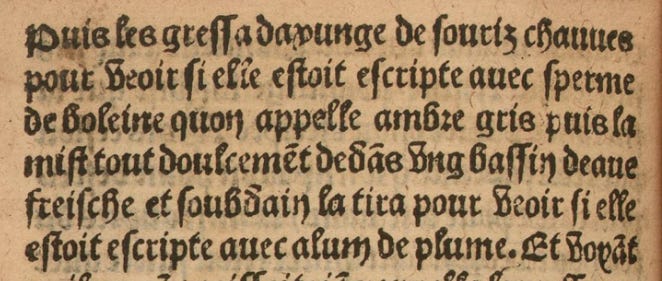 Puis les gressa daxunge de souriz chauues
pour veoir si elle estoit escripte auec sperme
de boleine quon appelle ambre gris puis la
mist tout doulcemēt dedās vng bassin deaue
freische et soubdain la tira pour veoir si elle
estoit escripte auec alum de plume. Et voyāt